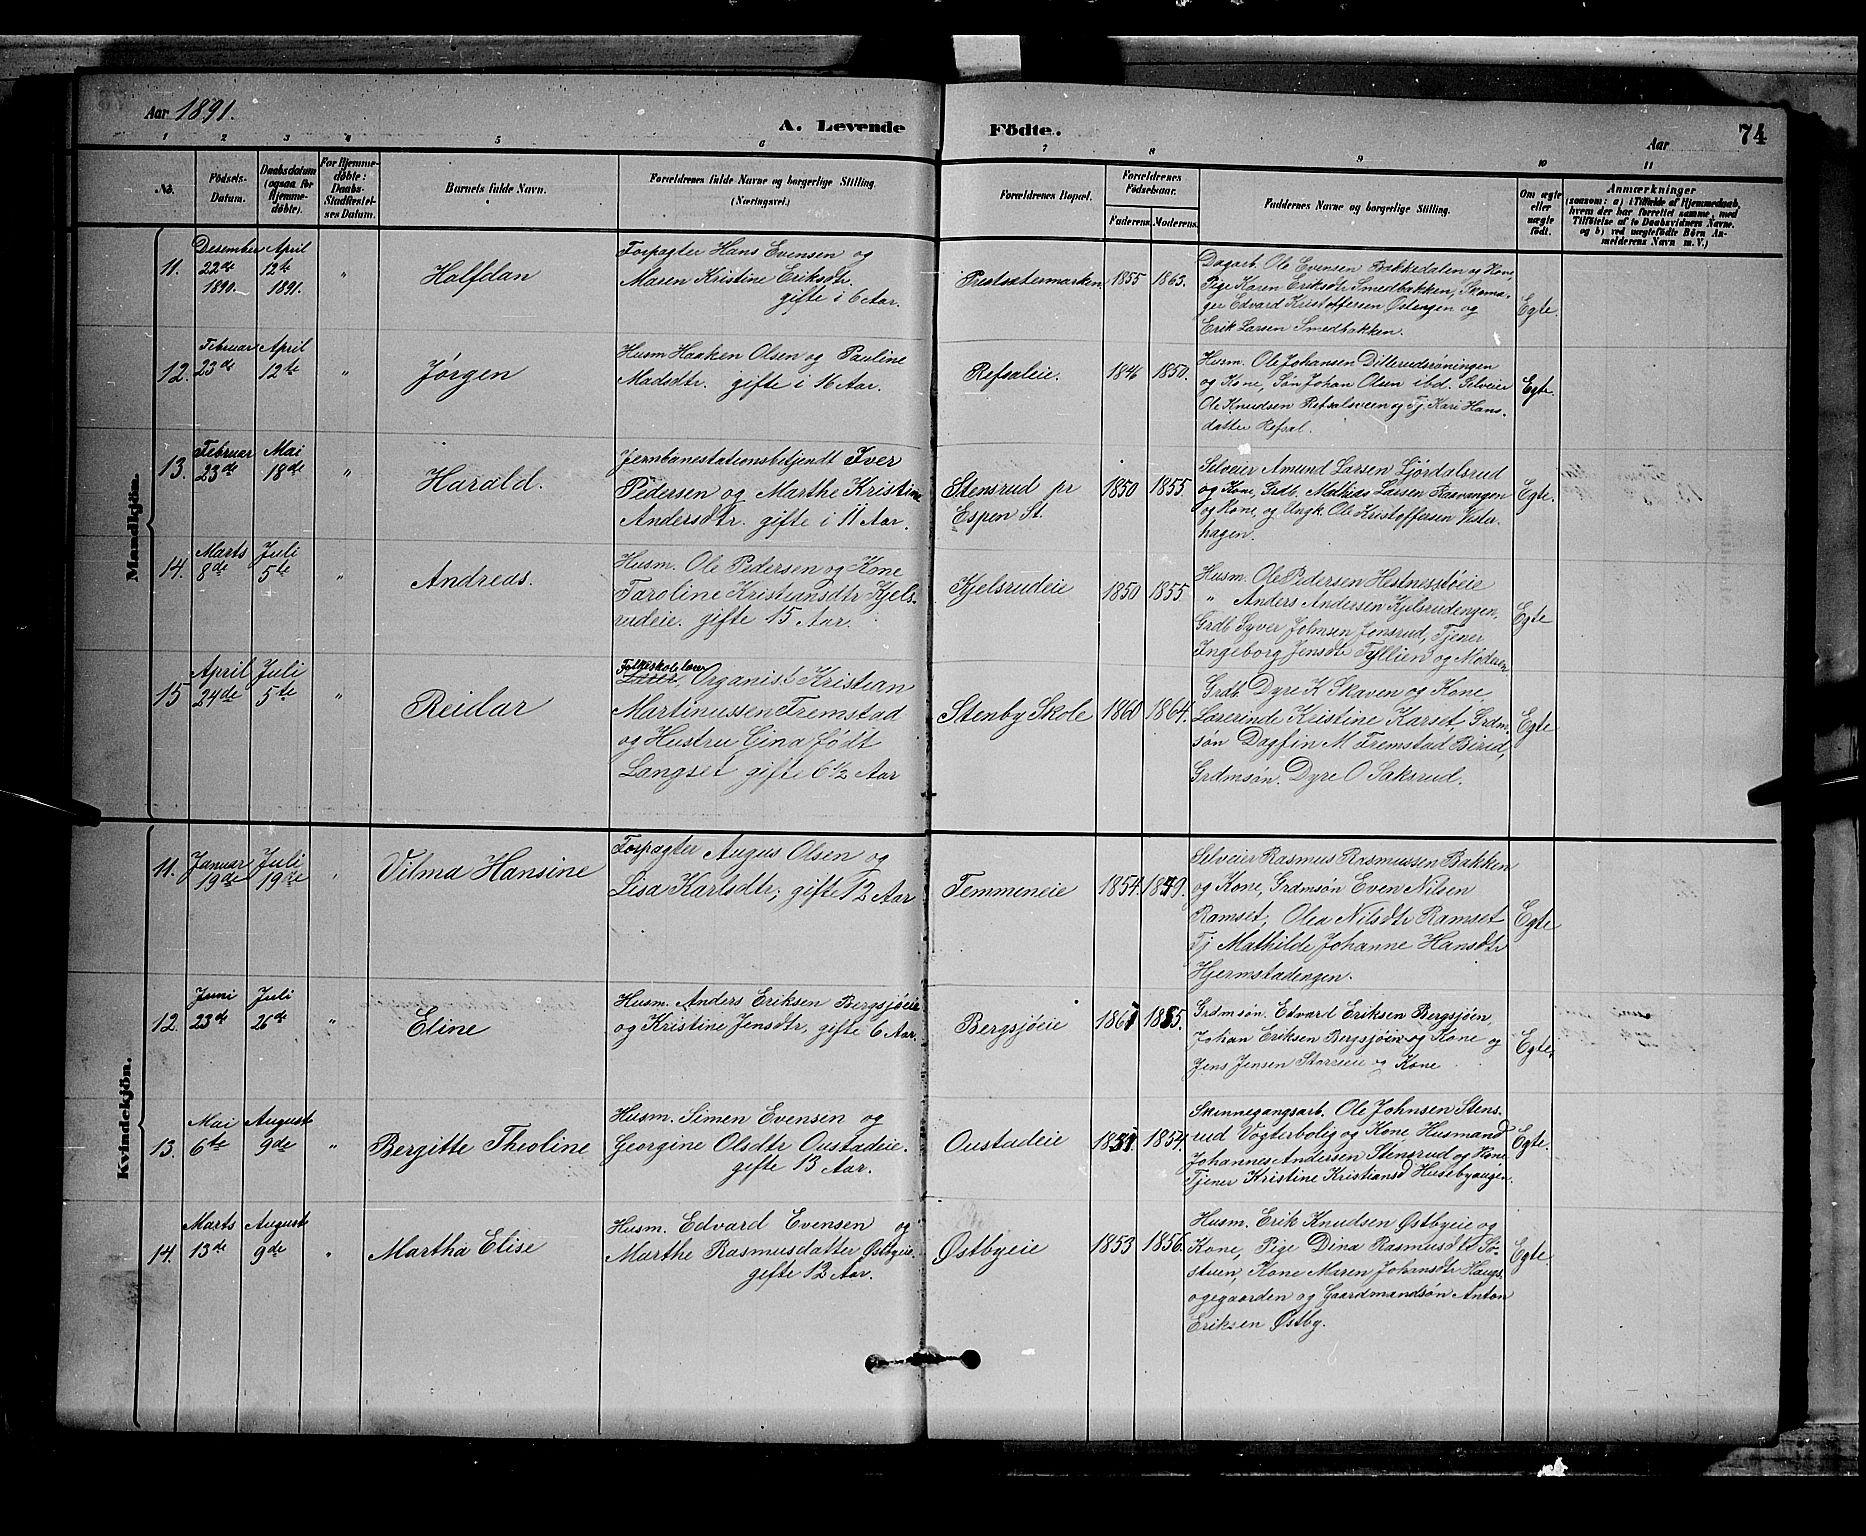 Aar 1891.
A. Levende
Födte.
Aar
74
1 2 3 4 5 6 7 8 9 10 11
No.
Födsels-
Datum.
Daabsdatum
(ogsaa for
Hjemme-
döbte).
For Hjemme-
döbte:
Daabs-
Stadfæstel-
ses Datum.
Barnets fulde Navn.
Forældrenes fulde Navne og borgerlige Stilling.
(Næringsvei.)
Forældrenes Bopæl.
Forældrenes
Födselsaar.
Faderens Moderens
Faddernes Navne og borgerlige Stilling.
Om ægte
eller
uægte
födt.
Anmærkninger
(saasom: a) i Tilfælde af Hjemmedaab,
hvem der har forrettet samme, med
Tilföielse af to Daabsvidners Navne.
og b) ved uægtefödte Börn An-
melderens Navn m. V.)
Mandkjön.
11.
Desember
22de
1890.
April
12te
1891.
"
Halfdan
Forpagter Hans Evensen og
Maren Kristine Eriksdtr.
gifte i 6 Aar.
Prestsætermarken
1855
1863.
Dagarb. Ole Evensen Bakkedalen og Kone,
Pige Karen Eriksdtr Smedbakken, Skoma-
ger Edvard Kristoffersen Østengen og
Erik Larsen Smedbakken.
Egte.
12.
Februar
23de
April
12te
"
Jørgen
Husm Haaken Olsen og Pauline
Madsdtr. gifte i 16 Aar.
Refsaleie.
1846
1850.
Husm. Ole Johansen Dillerudsrøningen
og Kone, Søn Johan Olsen ibd. Selveier
Ole Knudsen Refsalsveen og Tj. Kari Hans-
datter Refsal.
Egte.
13.
Februar
23de
Mai
18de
"
Harald.
Jernbanestationsbetjendt Iver
Pedersen og Marthe Kristine
Andersdtr. gifte i 11 Aar.
Stensrud pr
Espen St.
1850
1855.
Selveier Amund Larsen Ljørdalsrud
og Kone, Grdb. Mathias Larsen Rasvangen
og Kone, og Ungk. Ole Kristoffersen Vester-
hagen.
Egte.
14.
Marts
8de
Juli
5te
"
Andreas.
Husm. Ole Pedersen og Kone
Karoline Kristiansdtr Kjels-
rudeie. gifte 15 Aar.
Kjelsrudeie
1850
1855
Husm. Ole Pedersen Hestnesstøeie
" Anders Andersen Kjelsrudengen,
Grdb Syver Johnsen Jonsrud, Tjener
Ingeborg Jensdtr Tyllien og Moderen
Egte
15
April
24de
Juli
5te
"
Reidar
Folkeskolelær
Organist Kristian
Martinussen Fremstad
og Hustru Gina født
Langset gifte 6 1/2 Aar
Stenby Skole
1860
1864.
Grdb. Dyre K Skaven og Kone
Lærerinde Kristine Karset, Grdm-
søn Dagfin M. Fremstad Birid,
Grdmsøn. Dyre O Saksrud.
Egte
Kvindekjön.
11.
Januar
19de
Juli
19de
"
Vilma Hansine
Forpagter Augus Olsen og
Lisa Karlsdtr; gifte 12 Aar
Temmeneie
1854.
1849.
Selveier Rasmus Rasmussen Bakken
og Kone, Grdmsøn Even Nilsen
Ramset, Olea Nilsdtr Ramset
Tj Mathilde Johanne Hansdtr
Hjermstadengen.
Egte
12.
Juni
23de
Juli
26de
"
Eline
Husm. Anders Eriksen Bergsjøeie
og Kristine Jensdtr, gifte 6 Aar.
Bergsjøeie
1861
1865.
Grdmsøn. Edvard Eriksen Bergsjøen,
Johan Eriksen Bergsjøeie og Kone og
Jens Jensen Storreeie og Kone
Egte.
13.
Mai
6te
Auguste
9de
"
Bergitte Theoline
Husm. Simen Evensen og
Georgine Olsdtr Oustadeie.
gifte 13 Aar.
Oustadeie
1851
1854.
Skinnegangsarb. Ole Johnsen Stens-
rud Vogterbolig og Kone, Husmand
Johannes Andersen Stensrud og Kone
Tjener Kristine Kristiansd Husebyaugen.
Egte.
14.
Marts
13de
Auguste
9de
"
Martha Elise
Husm. Edvard Evensen og
Marthe Rasmusdatter Østbyeie.
gifte 12 Aar.
Østbyeie
1853
1856.
Husm. Erik Knudsen Østbyeie og
Kone, Pige Dina Rasmusdtr Sø-
stuen, Kone Maren Johansdtr Haugs-
ogegaarden og Gaardmandsøn Anton
Eriksen Østby.
Egte.